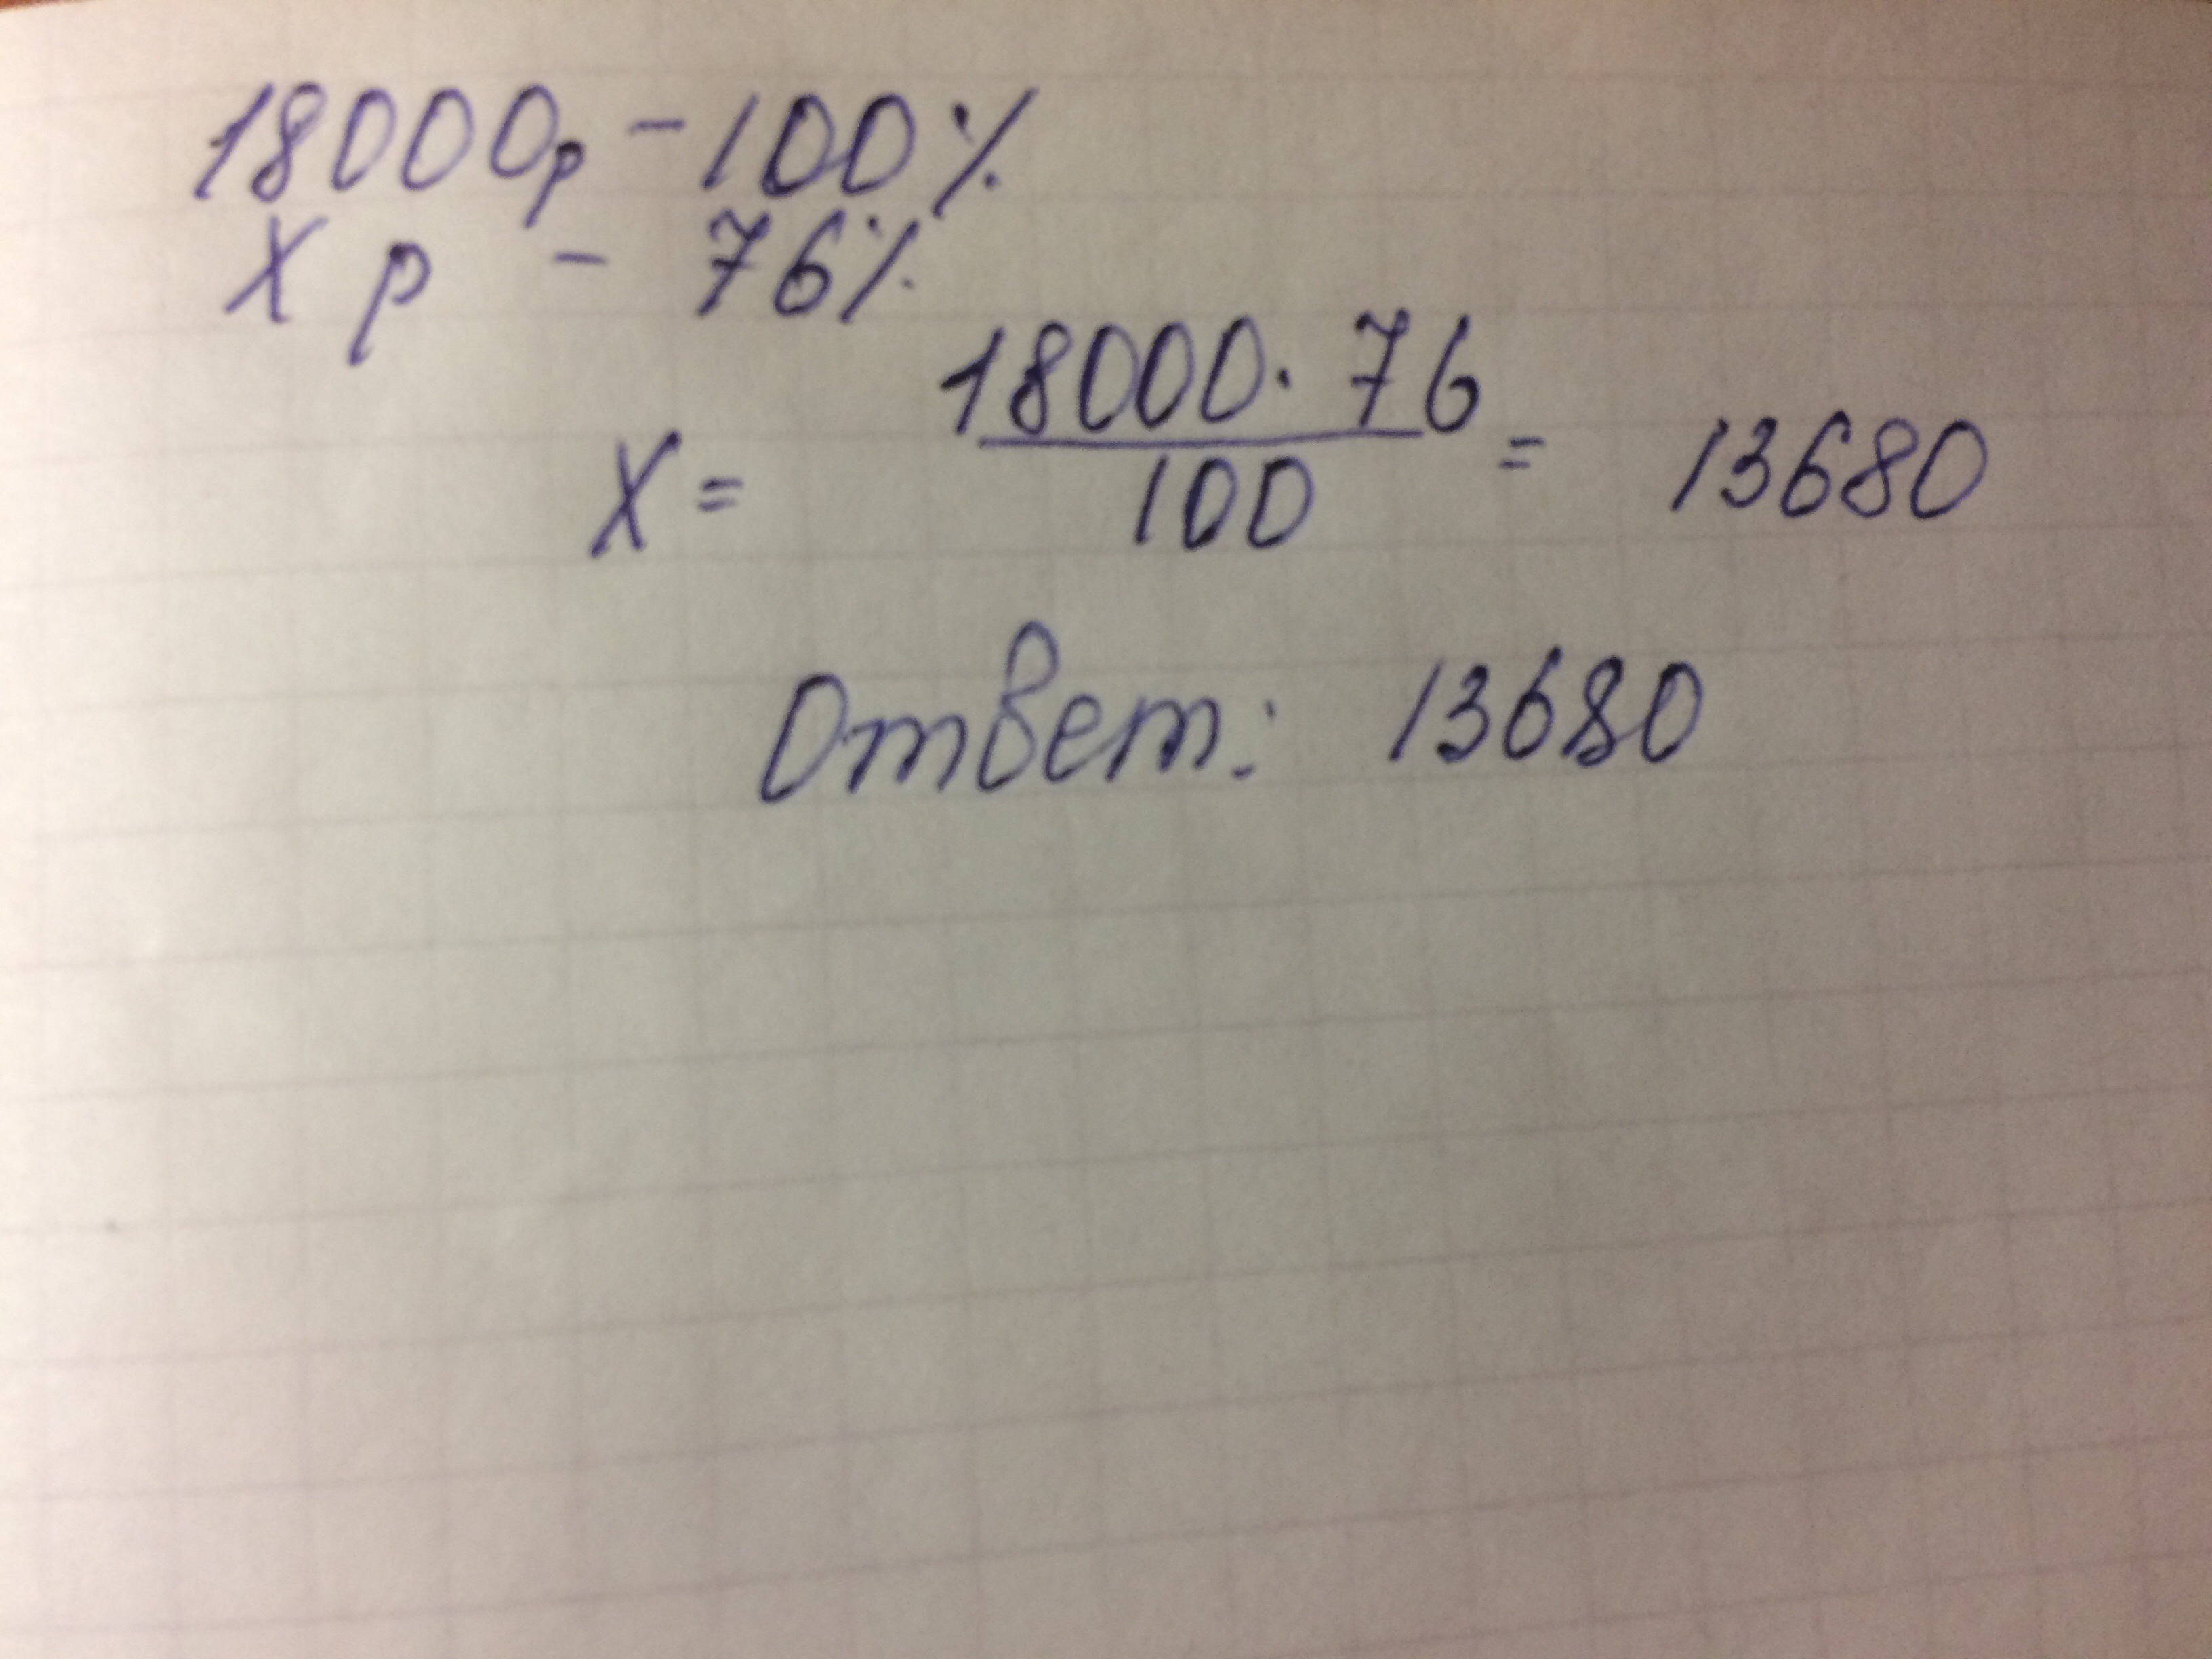 18000р - 100%
Х р - 76%
Х = 18000 · 76 / 100 = 13680
Ответ: 13680